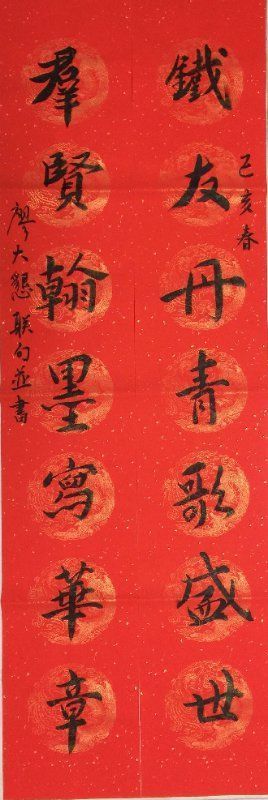 鐵友丹青歌盛世
己亥春
羣賢翰墨寫華章
廖大懇联句並書